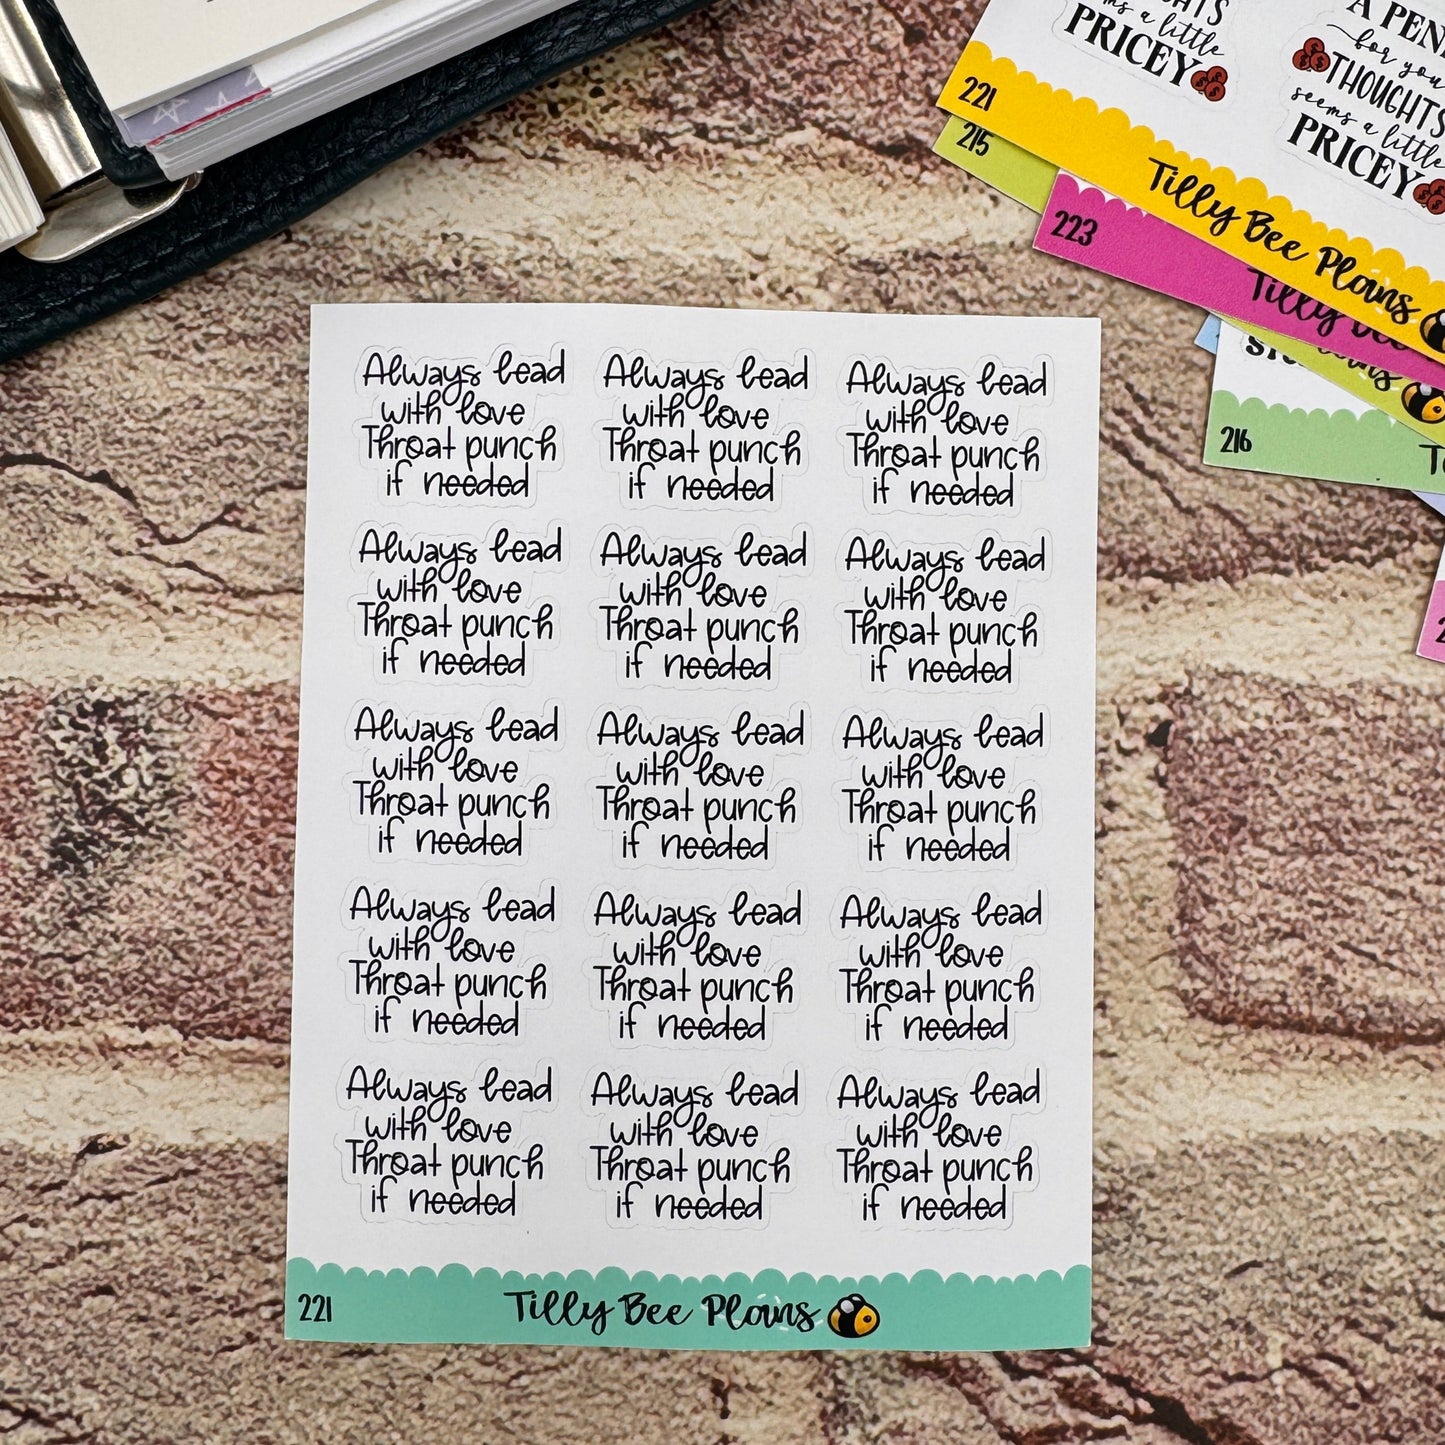 GHTS
ms a little
PRICEY
A PEN
for you
THOUGHTS
seems a little
PRICEY
221
Tilly Bee Plans
215
223
Tilly Bee
216
Always lead Always lead Always lead
with love with love with love
Throat punch Throat punch Throat punch
if needed if needed if needed
Always lead Always lead Always lead
with love with love with love
Throat punch Throat punch Throat punch
if needed if needed if needed
Always lead Always lead Always lead
with love with love with love
Throat punch Throat punch Throat punch
if needed if needed if needed
Always lead Always lead Always lead
with love with love with love
Throat punch Throat punch Throat punch
if needed if needed if needed
Always lead Always lead Always lead
with love with love with love
Throat punch Throat punch Throat punch
if needed if needed if needed
221 Tilly Bee Plans